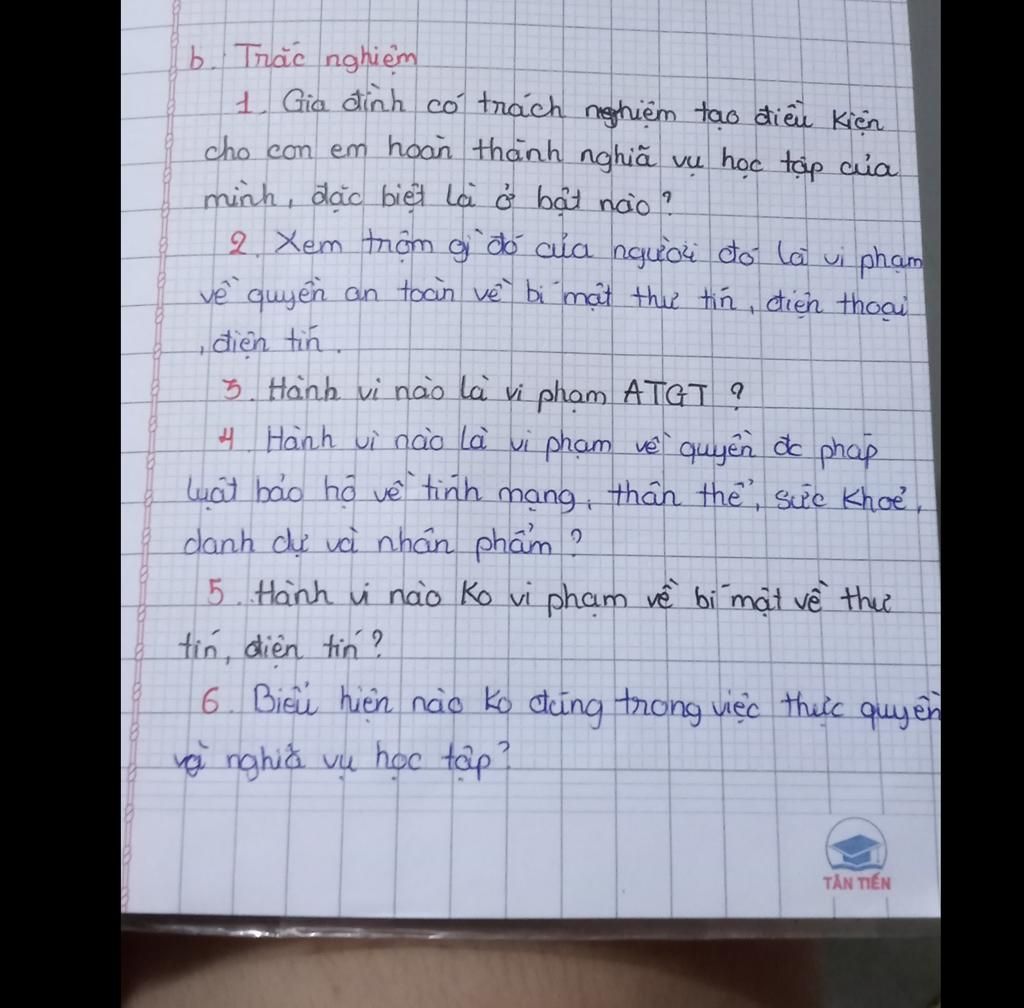 b. Trắc nghiệm
1. Gia đình có trách nghiệm tạo điều kiện
cho con em hoàn thành nghiã vụ học tập của
mình, đặc biệt là ở bật nào?
2. Xem trộm gì đó của người đó là vi phạm
về quyền an toàn về bí mật thư tín, điện thoại
, điện tín.
3. Hành vi nào là vi phạm ATGT?
4. Hành vi nào là vi phạm về quyền đc pháp
luật bảo hộ về tính mạng, thân thể, sức khoẻ,
danh dự và nhân phẩm?
5. Hành vi nào ko vi phạm về bí mật về thư
tín, điện tín?
6. Biểu hiện nào ko đúng trong việc thực quyền
và nghiã vụ học tập?
TÂN TIẾN